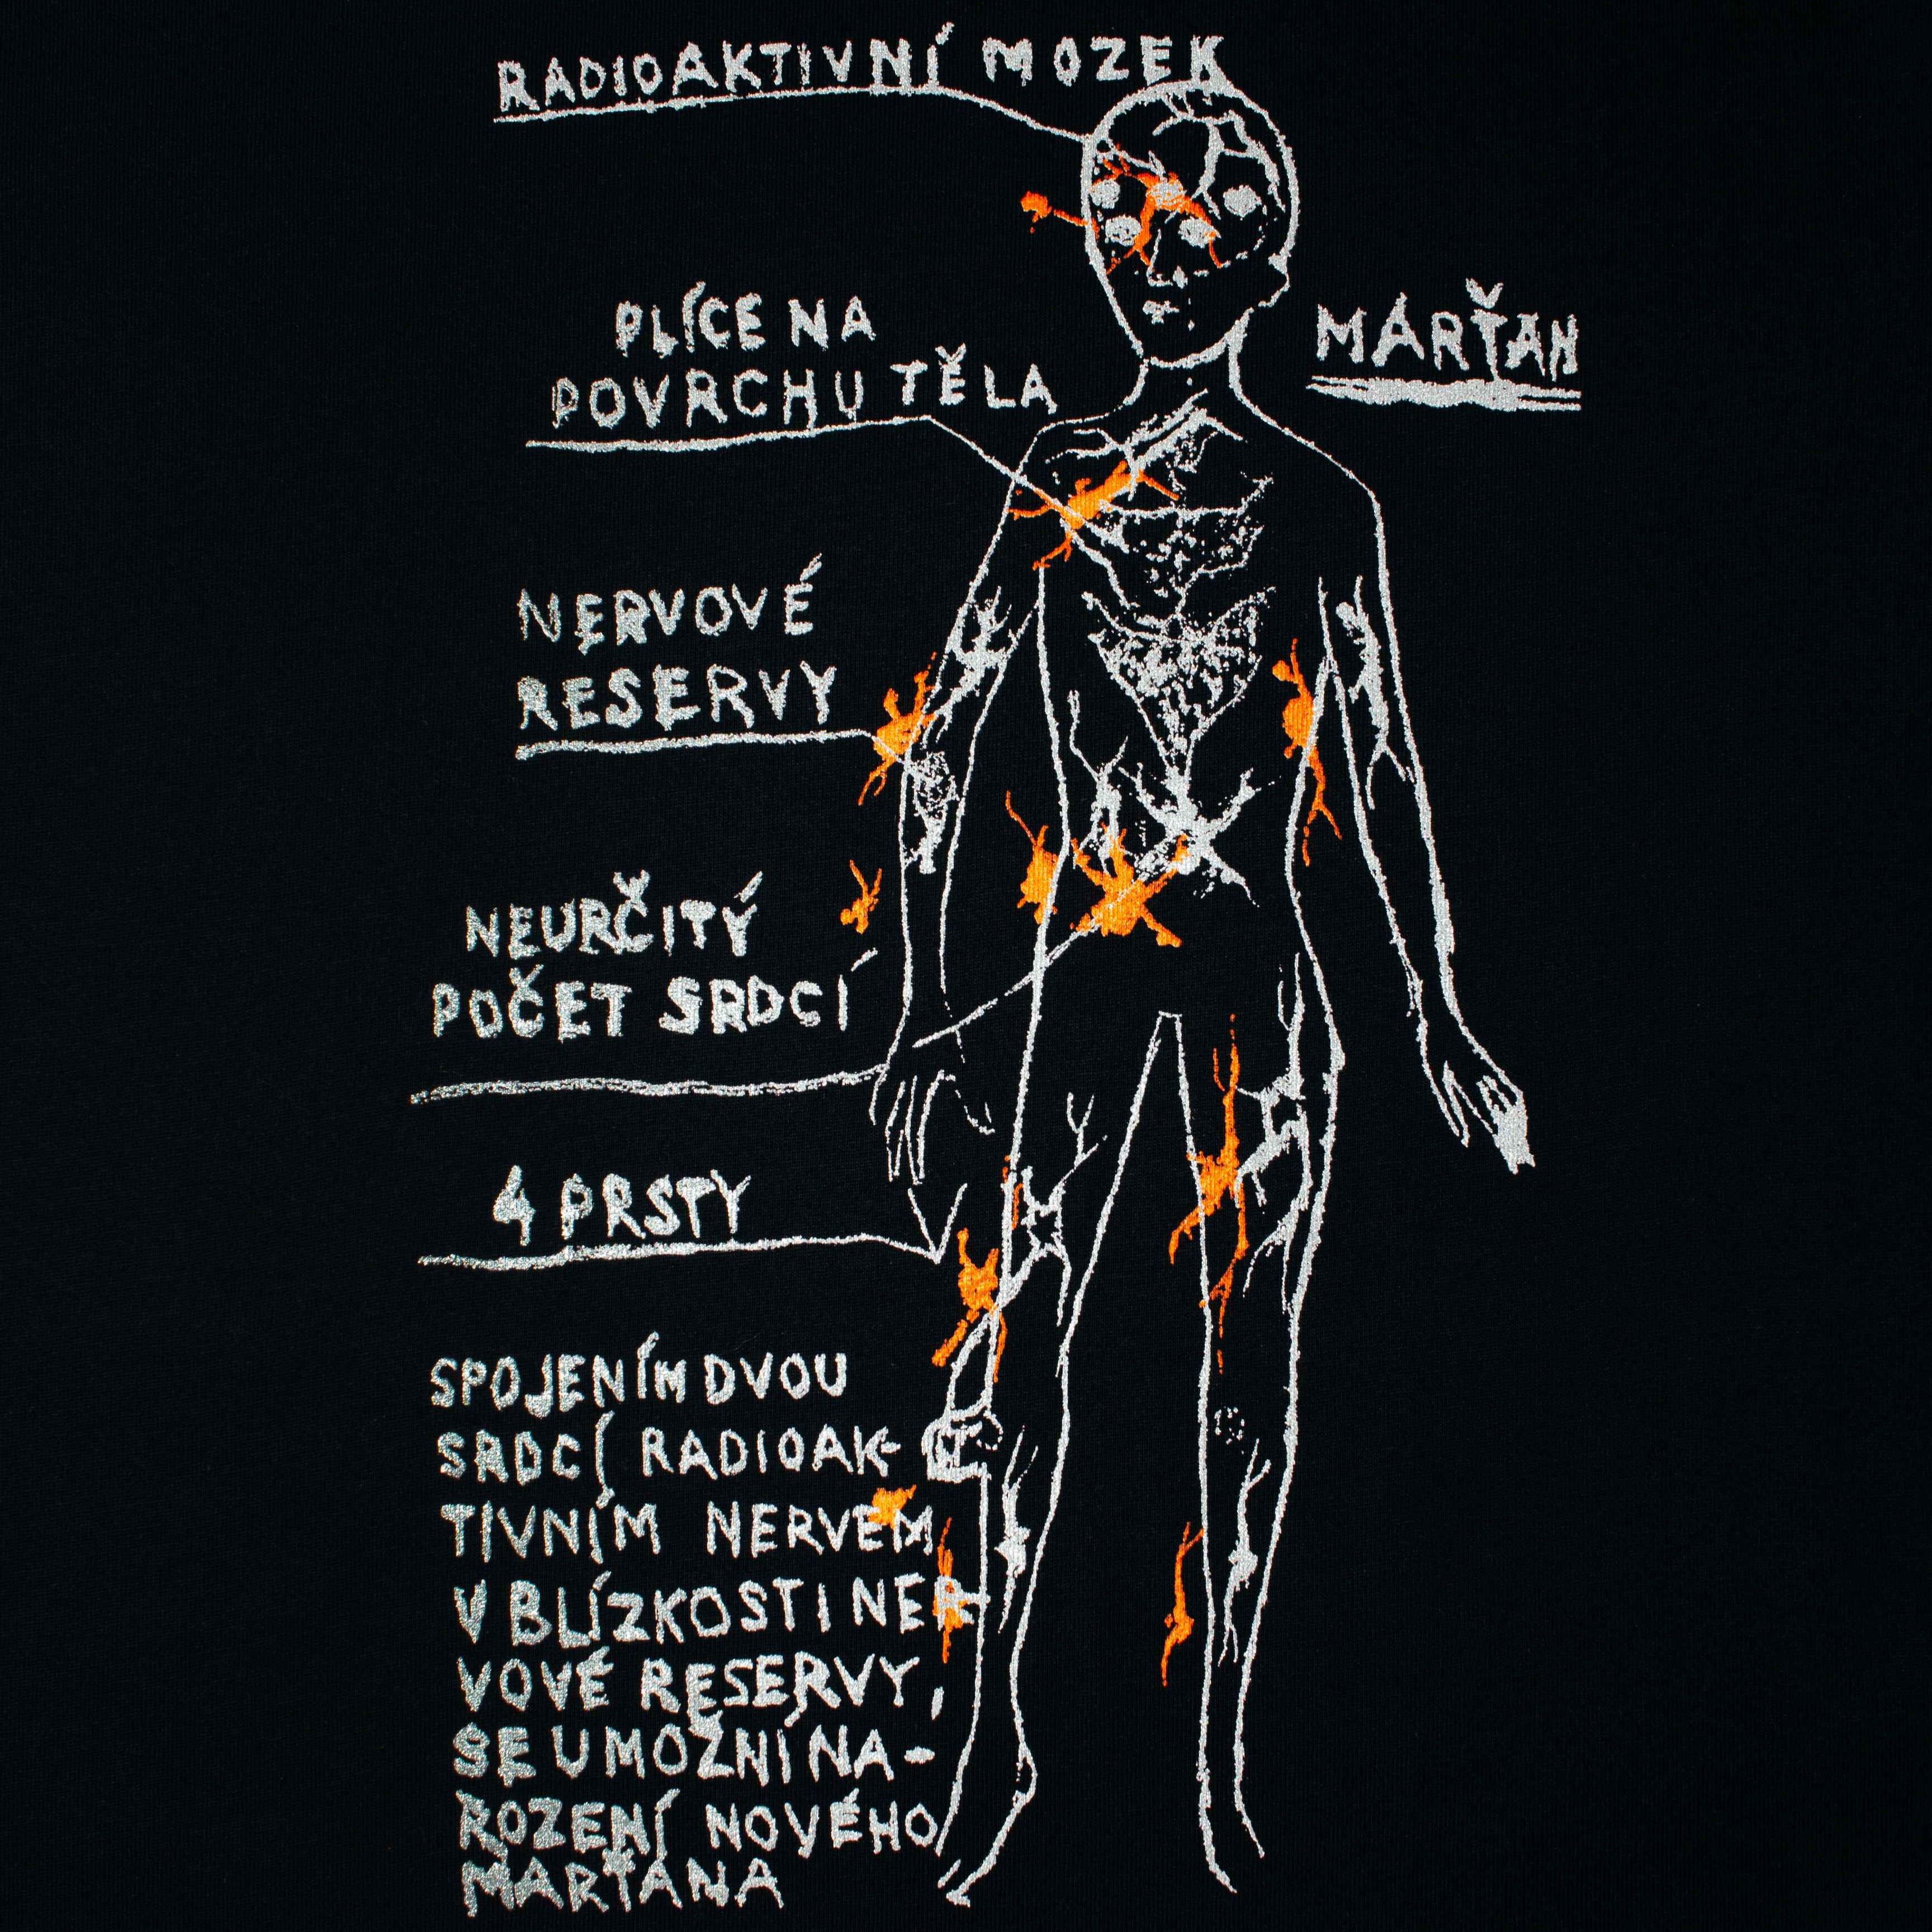 RADIOAKTIVNÍ MOZEK
PLÍCE NA
POVRCHU TĚLA
MARŤAN
NERVOVÉ
RESERVY
NEURČITÝ
POČET SRDCÍ
4 PRSTY
SPOJENÍM DVOU
SRDCÍ RADIOAK-
TIVNÍM NERVEM
V BLÍZKOSTI NER
VOVÉ RESERVY,
SE UMOŽNÍ NA-
ROZENÍ NOVÉHO
MARŤANA